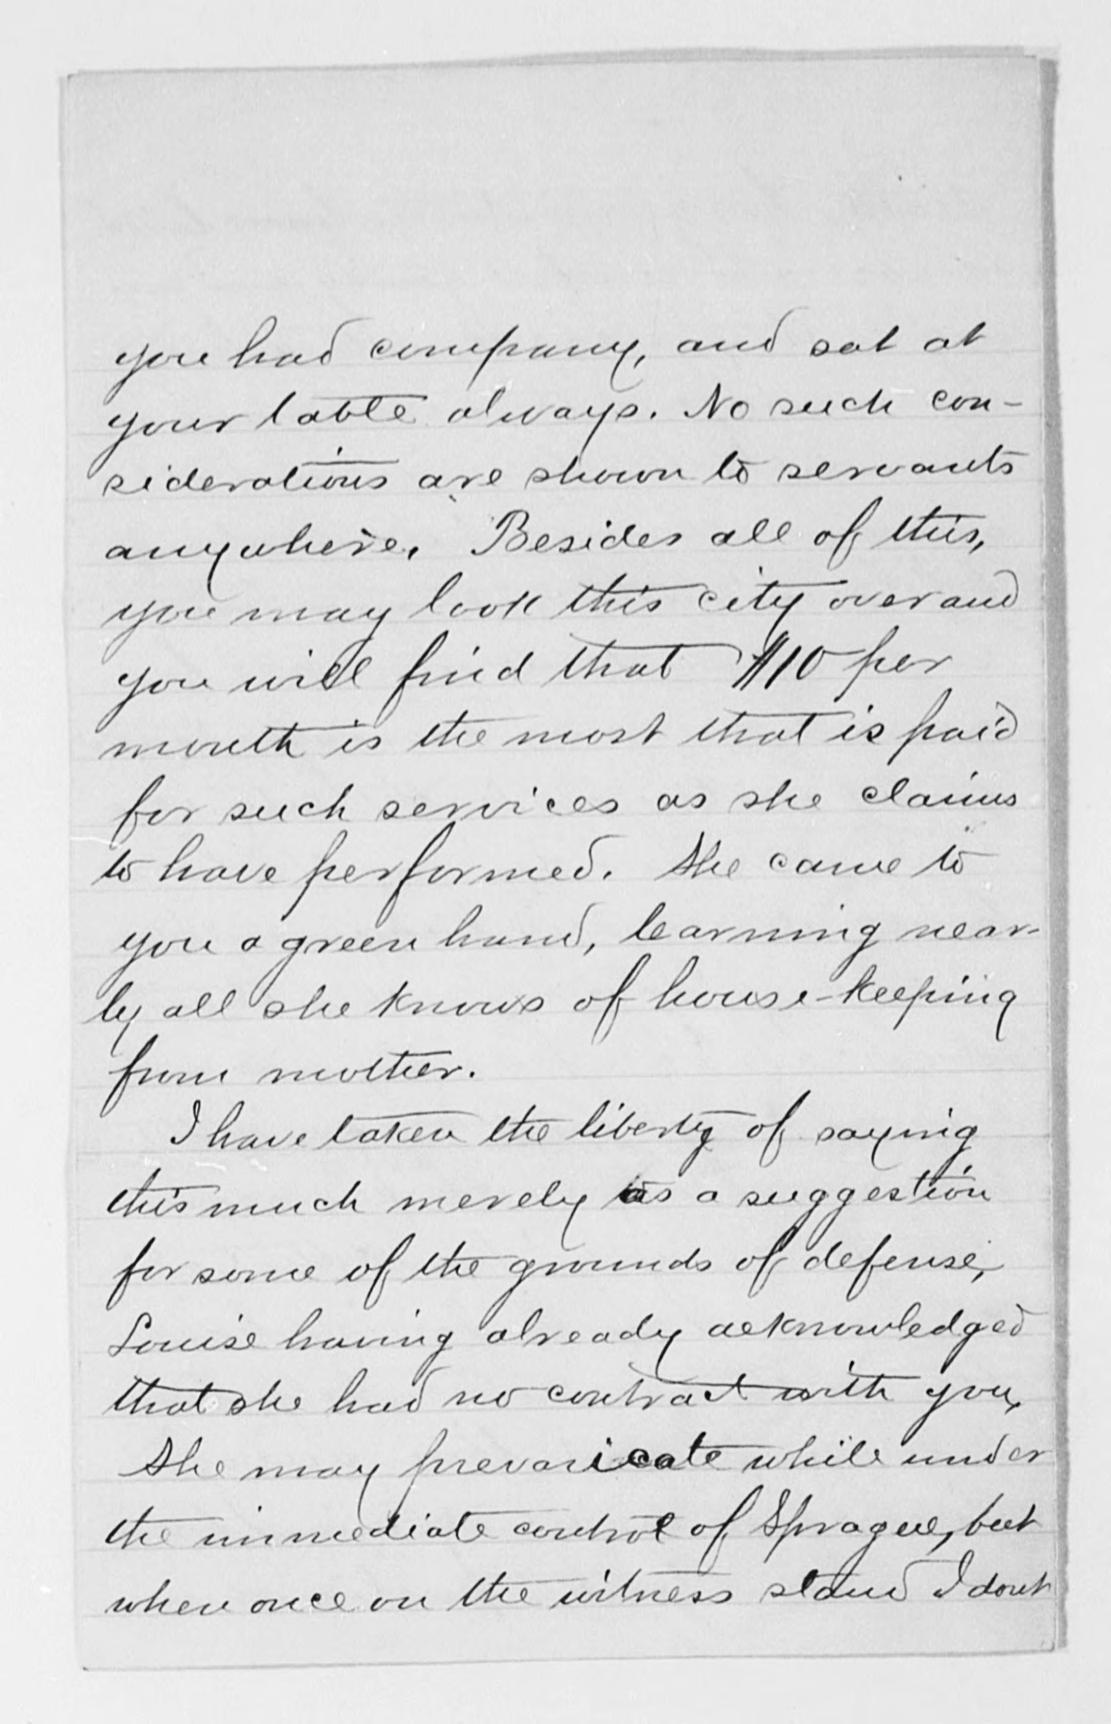 you had company, and sat at
your table always. No such con-
siderations are shown to servants
anywhere. Besides all of this,
you may look this city over and
you will find that $10 per
month is the most that is paid
for such services as she claims
to have performed. She came to
you a green hand, learning near-
ly all she knows of house-keeping
from mother.
I have taken the liberty of saying
this much merely as a suggestion
for some of the grounds of defense,
Louise having already acknowledged
that she had no contract with you,
She may prevaricate while under
the immediate control of Sprague, but
when once on the witness stand I dont